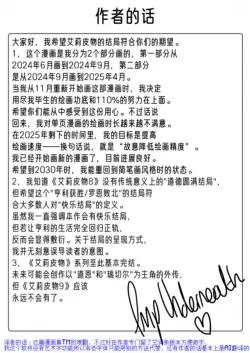 作者的话
大家好，我希望艾莉皮物的结局符合你们的期望。
1，这个漫画是我分为2个部分画的，第一部分从
2024年6月画到2024年9月，第二部分
是从2024年9月画到2025年4月。
当我从11月重新开始画这部漫画时，我决定
用尽我毕生的绘画功底和110%的努力在上面。
希望你们能从中感受到这份用心。不过话说
回来，我对单页漫画的绘画时长越来越不满意。
在2025年剩下的时间里，我的目标是提高
绘画速度——换句话说，就是“故意降低绘画精度”。
我已经开始画新的漫画了，目前进展良好。
希望到2030年时，我能重回到简笔画风格时的状态。
2，我知道《艾莉皮物8》没有传统意义上的"道德圆满结局"，
但希望这个"亨利获胜/罗恩败北"的结局符
合大多数人对"快乐结局"的定义。
虽然我一直强调本作会有快乐结局，
但若让亨利的生活完全回归正轨，
反而会显得敷衍。关于结局的呈现方式，
我并无刻意误导读者的意图。
3，《艾莉皮物》系列至此基本完结。
未来可能会创作以"道恩"和"瑞切尔"为主角的外传，
但《艾莉皮物9》应该
永远不会有了。